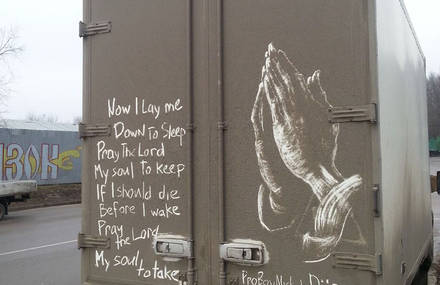 Now I Lay me
Down To Sleep
Pray The Lord
My soul to keep
If I should die
Before I wake
Pray
the Lord
My soul
to take..